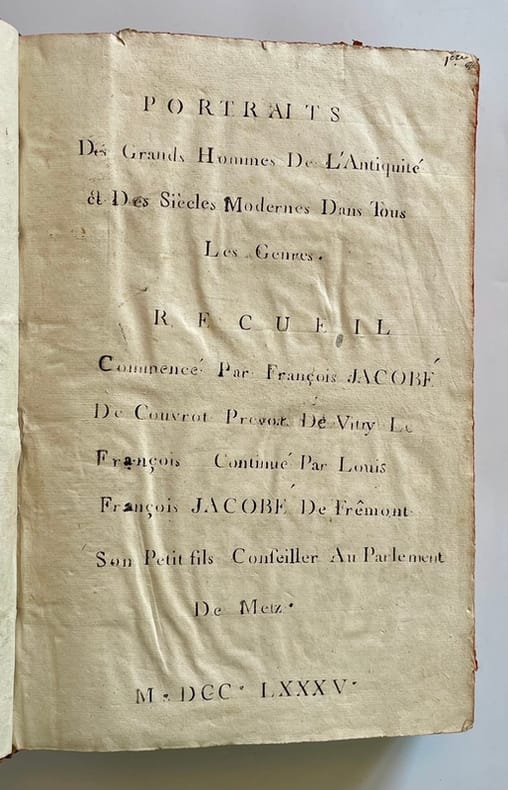 1ere
PORTRAITS
Des Grands Hommes De L'Antiquité
et Des Siècles Modernes Dans Tous
Les Genres.
RECUEIL
Commencé Par François JACOBÉ
De Couvrot Prevot De Vitry Le
François Continué Par Louis
François JACOBÉ De Frêmont
Son Petit fils Conſeiller Au Parlement
De Metz.
M. DCC. LXXXV.